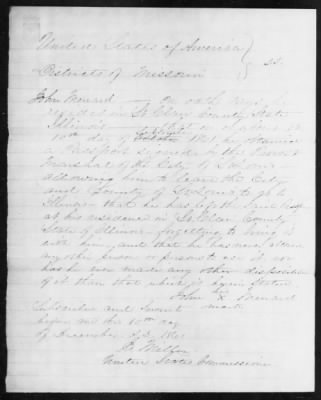 United States of America }
Districts of Missouri } SS.
John Menard — on oath says he
resides in St Clair County State
Illinois that on or about
day of October 1861 he obtained
a Passport issued by the Provost
Marshal of the City of St Louis
allowing him to leave the City
and County of St Louis to go to
Illinois that he has left the same
at his residence in St Clair County
State of Illinois forgetting to bring it
with him, and that he has never allowed
any other person or persons to use it nor
has he ever made any other disposition
of it than that which is again stated
his
John X Menard
mark
Subscribed and Sworn
before me this 10th day
of December A.D. 1861
United States Commissioner